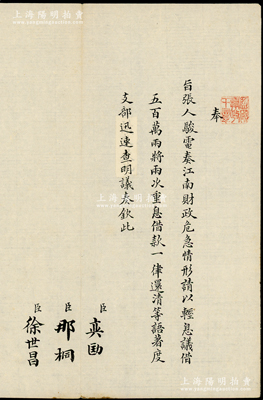 上海陽明拍賣
上海陽明拍賣
奉
旨張人駿電奏江南財政危急情形請以輕息議借
五百萬兩將兩次重息借款一律還清等語著度
支部迅速查明議奏欽此
臣奕劻
臣那桐
臣徐世昌